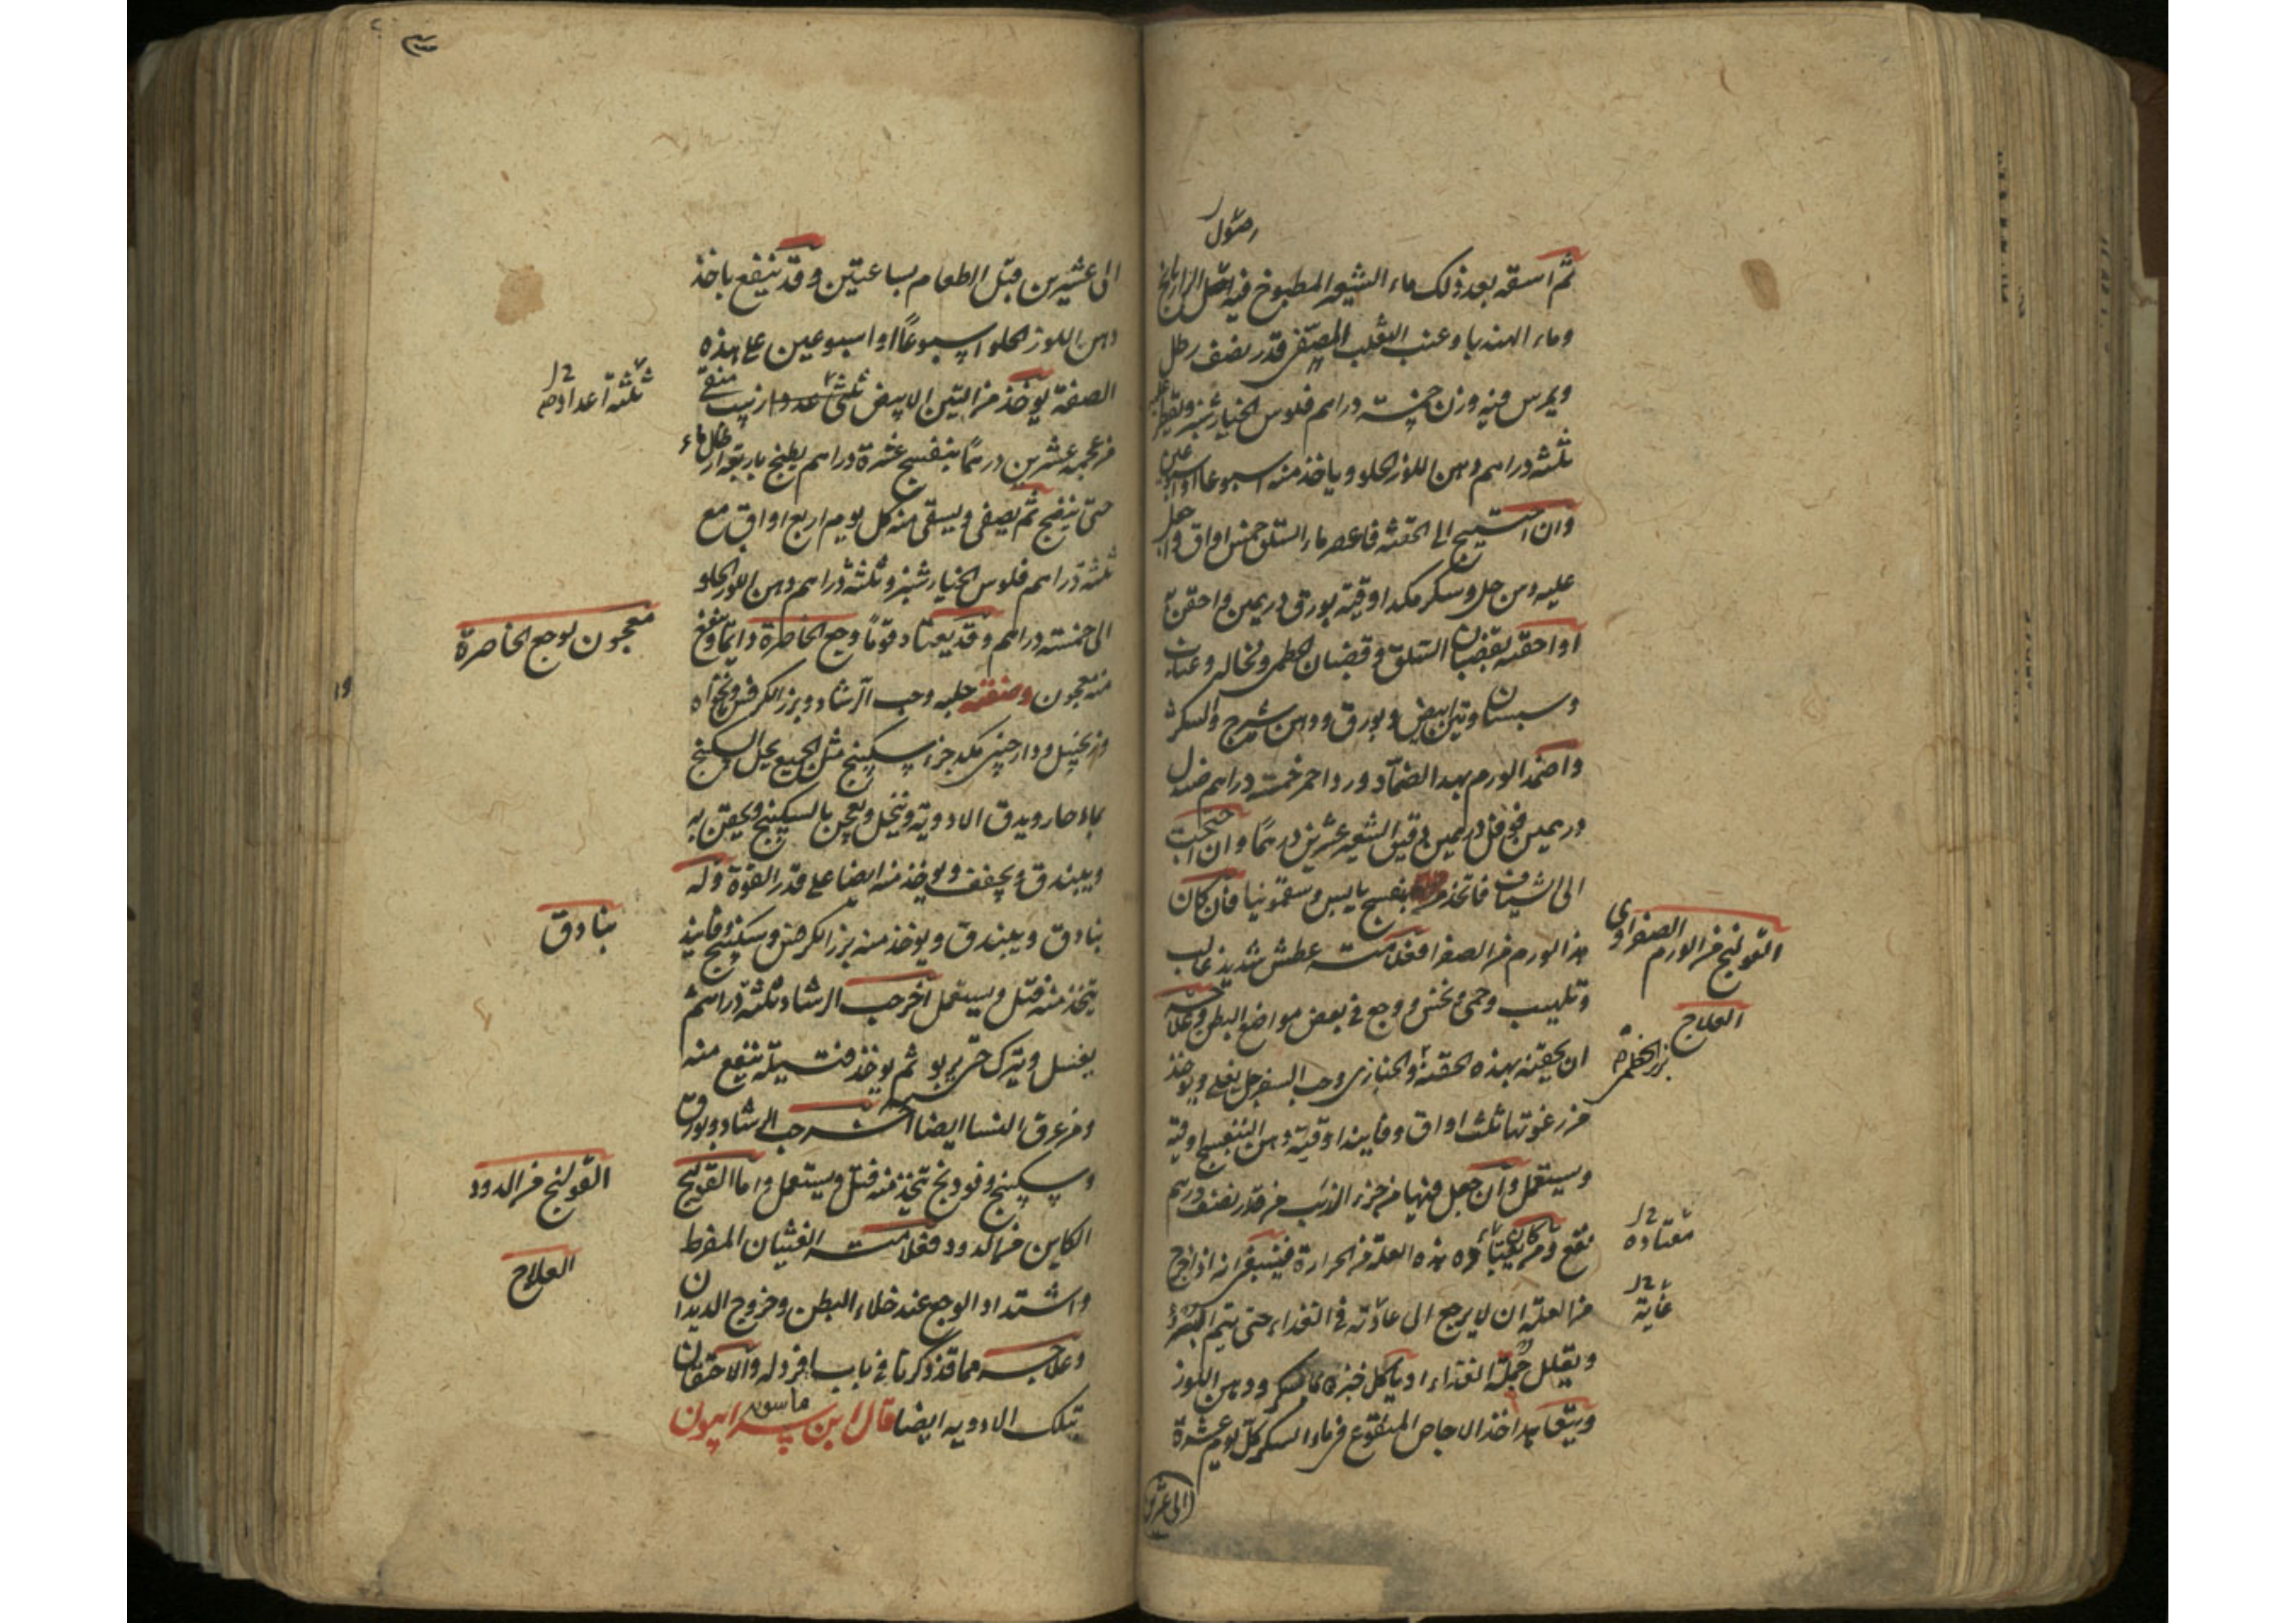 اصول
ثم اسقه بعد ذلك ماء الشعير المطبوخ فيه اصل الرازيانج
وماء الهندبا وعنب الثعلب المصفى قدر نصف رطل
ويمرس فيه وزن خمسة دراهم فلوس الخيارشنبر ويقطر عليه
ثلثة دراهم دهن اللوز الحلو وياخذ منه اسبوعا او اسبوعين
وان احتيج الى الحقنة فاعصر ماء السلق خمس اواق واجعل
عليه دهن حل وسكر مكد اوقية بورق درهمين واحقن
او احقنه بقضبان السلق وقضبان الخطمى ونخاله وعناب
وسبستان وتين ابيض وبورق ودهن شيرج والسكر
واضمد الورم بهذا الضماد ورد احمر خمسة دراهم صندل
درهمين فوفل درهمين دقيق الشعير عشرين درهمًا وان احتجت
الى شياف فاتخذ من بنفسج يابس وسقمونيا فان كان
هذا الورم من الصفرا فعلامته عطش شديد غالب
وتلهيب وحمى ونخس ووجع فى بعض مواضع البطن وعلاجه
ان يحقنه بهذه الحقنة والخبازى وحب السفرجل يغلى ويوخذ
من رغوتها ثلث اواق وفانيد اوقية دهن البنفسج اوقية
ويستعمل وان جعل فيها من خرء الذئب من قدر نصف درهم
نفع ومن كان يعتاده هذه العلة من الحرارة فينبغى انه اذا خرج
من العلة ان لا يرجع الى عادته فى الغذاء حتى يتم البرء
ويقلل جملة الغذاء او ياكل خبزه بماء سكر ودهن اللوز
ويتعاهد اخذ الاجاص المنقوع فى ماء السكر كل يوم عشرة
الى عشرين
القولنج من الورم الصفراوى
العلاج
بزر الخطمى
معتاده
غاية
الى عشرين قبل الطعام بساعتين وقد ينفع باخذ
دهن اللوز الحلو اسبوعًا او اسبوعين على هذه
الصفة يوخذ من التين الابيض ثلثى عددا زبيب منقى
من عجمه عشرين درهمًا بنفسج عشرة دراهم يطبخ باربعة ارطال ماء
حتى ينضج ثم يصفى ويسقى منه كل يوم اربع اواق مع
ثلثة دراهم فلوس الخيارشنبر وثلثة دراهم دهن اللوز الحلو
الى خمسة دراهم وقد يعتاد قومًا وجع الخاصرة دايمًا وينفع
منه معجون وصفته حلبه وحب الرشاد وبزر الكرفس ونانخواه
وزنجبيل ودارچينى مكد جزء سكبينج مثل الجميع يحل السكبينج
بماء حار ويدق الادوية وينخل ويعجن بالسكبينج ويحقن به
ويبندق ويجفف ويوخذ منه ايضا على قدر القوة وله
بنادق ويبندق ويوخذ منه بزر الكرفس وسكبينج وفانيذ
يتخذ منه فتل ويستعمل آخر حب الرشاد ثلثة دراهم
يغسل ويترك حتى يربو ثم يوخذ فتيلة ينفع منه
ومن عرق النسا ايضا آخر حب الرشاد وبورق
وسكبينج وفودنج تتخذ منه فتل ويستعمل واما القولنج
الكاين من الدود فعلامته الغثيان المفرط
واشتداد الوجع عند خلاء البطن وخروج الديدان
وعلاجه مما قد ذكرنا فى باب افرد له والاحتقان
بتلك الادويه ايضا قال ابن سرابيون
ماسويه
ثلثة اعداد
معجون لوجع الخاصرة
بنادق
القولنج من الدود
العلاج